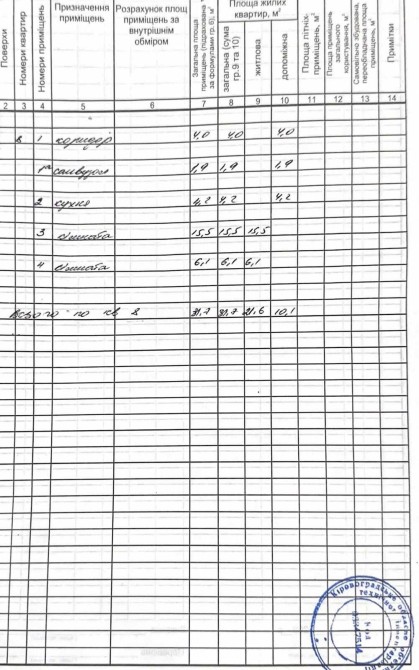 Поверхи
Номери квартир
Номери приміщень
Призначення приміщень
Розрахунок площ приміщень за внутрішнім обміром
Загальна площа приміщень (підрахована за формулами гр. 6), м²
Площа жилих квартир, м²
загальна (сума гр.9 та 10)
житлова
допоміжна
Площа літніх приміщень, м²
Площа приміщень загального користування, м²
Самовільно збудована, переобладнана площа приміщень, м²
Примітки
2 3 4 5 6 7 8 9 10 11 12 13 14
8 1 коридор 4,0 4,0 4,0
1а санвузол 1,9 1,9 1,9
2 кухня 4,2 4,2 4,2
3 кімната 15,5 15,5 15,5
4 кімната 6,1 6,1 6,1
Всього по кв 8 31,7 31,7 21,6 10,1
Кіровоградське обласне